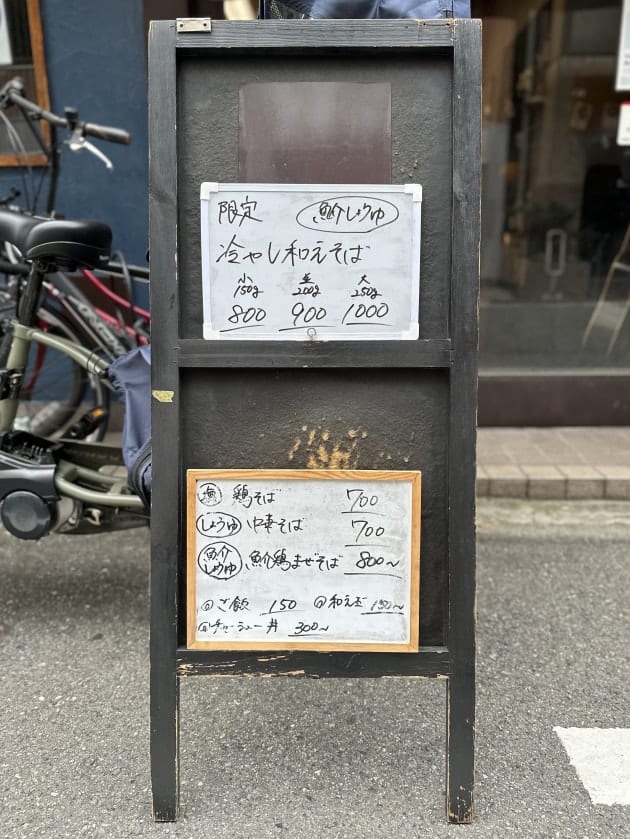 限定 魚介しょうゆ
冷やし和えそば
小 並 大
150g 200g 250g
800 900 1000
鶏そば 700
しょうゆ 中華そば 700
魚介しょうゆ 魚介鶏まぜそば 800~
@ご飯 150 @和え玉 150~
@チャーシュー丼 300~